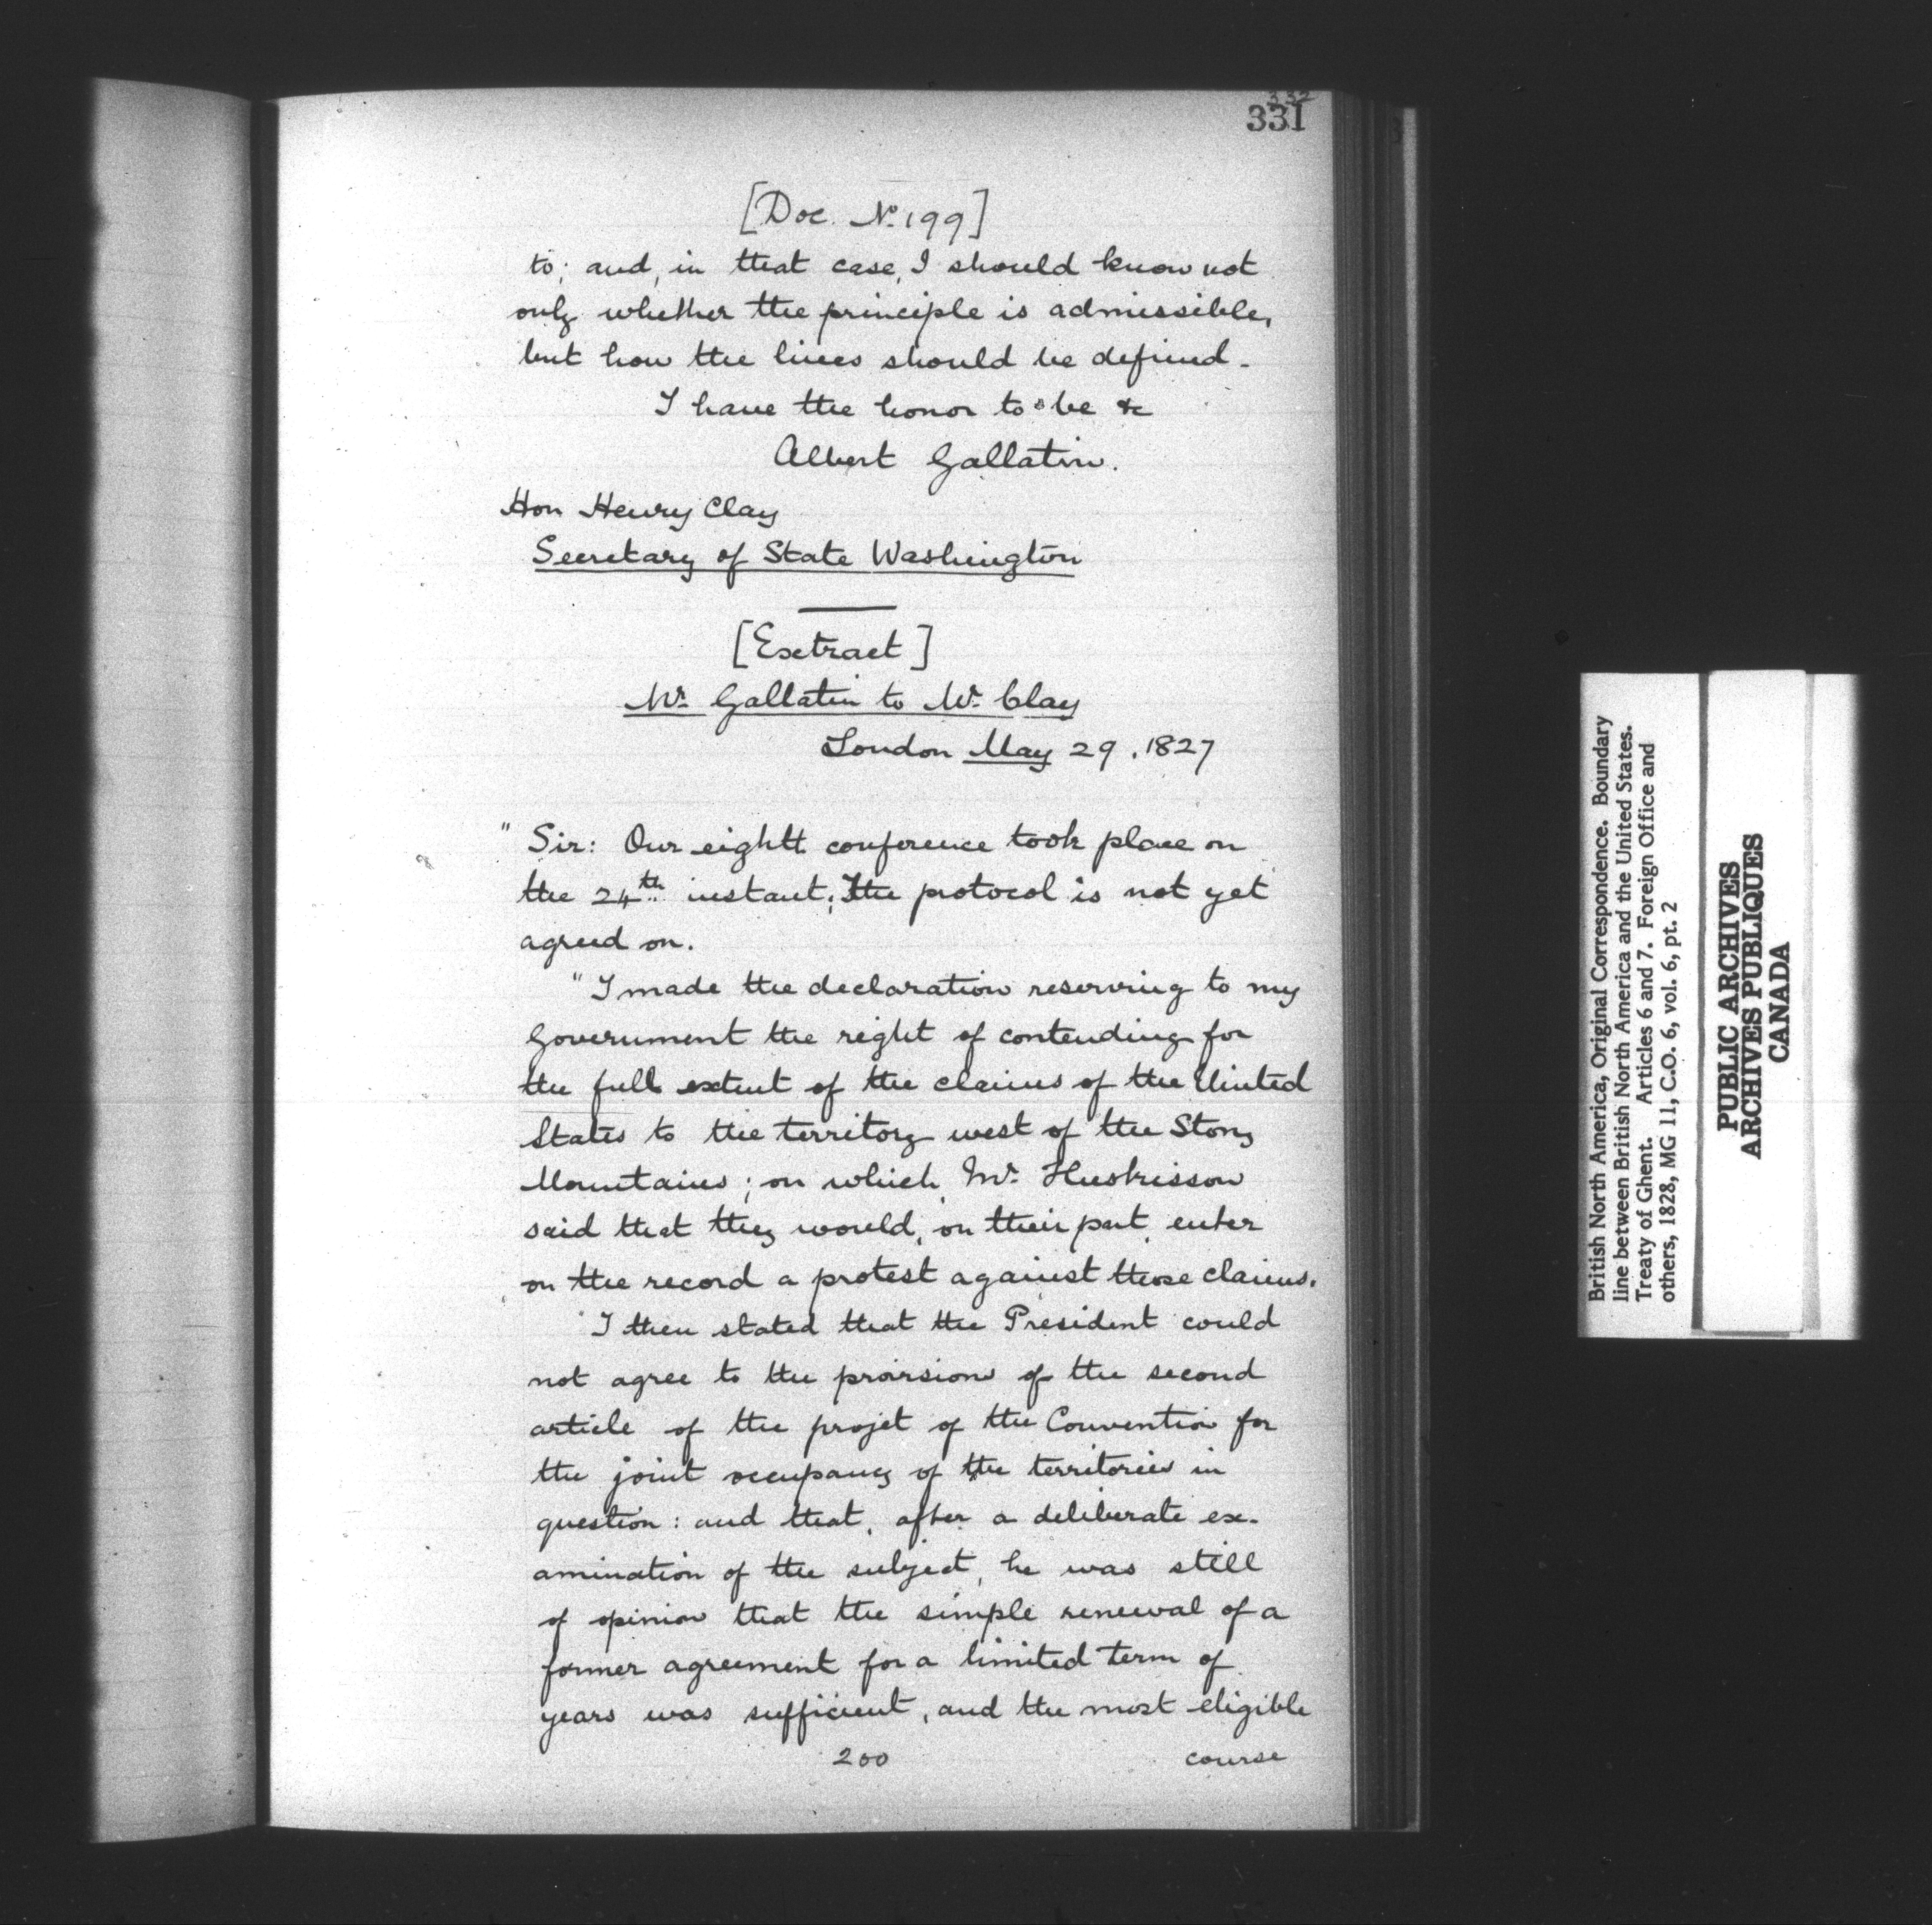 332
331
[Doc. No. 199]
to; and, in that case, I should know not
only whether the principle is admissible,
but how the lines should be defined -
I have the honor to be &c
Albert Gallatin.
Hon Henry Clay
Secretary of State Washington
[Extract]
Mr. Gallatin to Mr. Clay
London May 29. 1827
" Sir: Our eighth conference took place on
the 24th instant; The protocol is not yet
agreed on.
"I made the declaration reserving to my
Government the right of contending for
the full extent of the claims of the United
States to the territory west of the Stony
Mountains; on which, Mr. Huskisson
said that they would, on their part, enter
on the record a protest against those claims.
"I then stated that the President could
not agree to the provisions of the second
article of the projet of the Convention for
the joint occupancy of the territories in
question: and that, after a deliberate ex-
amination of the subject, he was still
of opinion that the simple renewal of a
former agreement for a limited term of
years was sufficient, and the most eligible
200 course
British North America, Original Correspondence. Boundary
line between British North America and the United States.
Treaty of Ghent. Articles 6 and 7. Foreign Office and
others, 1828, MG 11, C.O. 6, vol. 6, pt. 2
PUBLIC ARCHIVES
ARCHIVES PUBLIQUES
CANADA